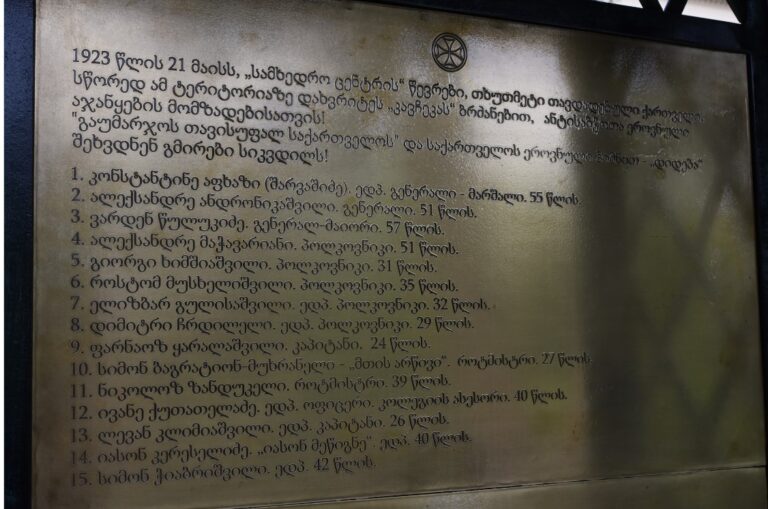 1923 წლის 21 მაისს, „სამხედრო ცენტრის“ წევრები, თხუთმეტი თავდადებული ქართველი,
სწორედ ამ ტერიტორიაზე დახვრიტეს „კავჩეკას“ ბრძანებით, ანტისაბჭოთა ეროვნული
აჯანყების მომზადებისათვის!
"გაუმარჯოს თავისუფალ საქართველოს" და საქართველოს ეროვნული ჰიმნით - „დიდება“
შეხვდნენ გმირები სიკვდილს!
1. კონსტანტინე აფხაზი (შარვაშიძე). ედპ. გენერალი - მარშალი. 55 წლის.
2. ალექსანდრე ანდრონიკაშვილი. გენერალი. 51 წლის.
3. ვარდენ წულუკიძე. გენერალ-მაიორი. 57 წლის.
4. ალექსანდრე მაჭავარიანი. პოლკოვნიკი. 51 წლის.
5. გიორგი ხიმშიაშვილი. პოლკოვნიკი. 31 წლის.
6. როსტომ მუსხელიშვილი. პოლკოვნიკი. 35 წლის.
7. ელიზბარ გულისაშვილი. ედპ. პოლკოვნიკი. 32 წლის.
8. დიმიტრი ჩრდილელი. ედპ. პოლკოვნიკი. 29 წლის.
9. ფარნაოზ ყარალაშვილი. კაპიტანი. 24 წლის.
10. სიმონ ბაგრატიონ-მუხრანელი - „მთის არწივი“. როტმისტრი. 27 წლის.
11. ნიკოლოზ ზანდუკელი. როტმისტრი. 39 წლის.
12. ივანე ქუთათელაძე. ედპ. ოფიცერი. კოლეგიის ასესორი. 40 წლის.
13. ლევან კლიმიაშვილი. ედპ. კაპიტანი. 26 წლის.
14. იასონ კერესელიძე. „იასონ მეწიგნე“. ედპ. 40 წლის.
15. სიმონ ჭიაბრიშვილი. ედპ. 42 წლის.